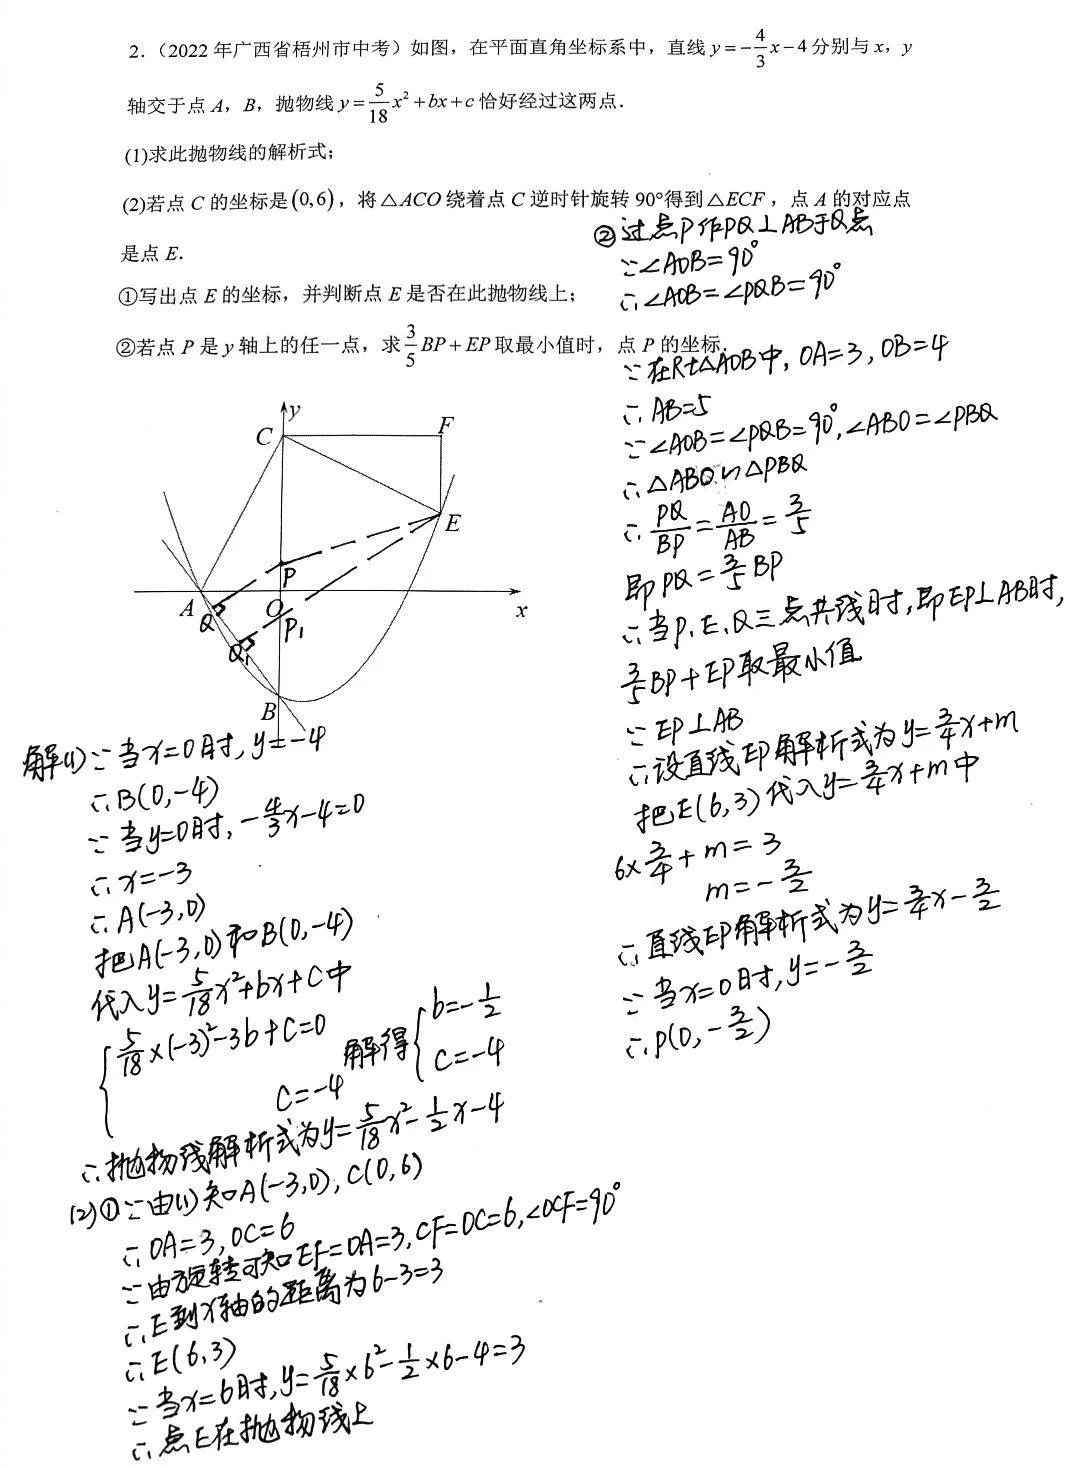 2.（2022年广西省梧州市中考）如图，在平面直角坐标系中，直线 y=-4/3x-4 分别与 x，y
轴交于点 A，B，抛物线 y=5/18x²+bx+c 恰好经过这两点.
(1)求此抛物线的解析式；
(2)若点 C 的坐标是(0,6)，将△ACO 绕着点 C 逆时针旋转 90°得到△ECF，点 A 的对应点
是点 E.
①写出点 E 的坐标，并判断点 E 是否在此抛物线上；
②若点 P 是 y 轴上的任一点，求 3/5BP+EP 取最小值时，点 P 的坐标.
y
C
F
E
P
A
O
x
Q
P₁
Q₁
B
解(1)∵当x=0时,y=-4
∴B(0,-4)
∵当y=0时,-4/3x-4=0
∴x=-3
∴A(-3,0)
把A(-3,0)和B(0,-4)
代入y=5/18x²+bx+c中
{5/18×(-3)²-3b+c=0
c=-4
解得{b=-1/2
c=-4
∴抛物线解析式为y=5/18x²-1/2x-4
(2)①∵由(1)知A(-3,0),C(0,6)
∴OA=3,OC=6
∵由旋转可知EF=OA=3,CF=OC=6,∠OCF=90°
∴E到x轴的距离为6-3=3
∴E(6,3)
∵当x=6时,y=5/18×6²-1/2×6-4=3
∴点E在抛物线上
②过点P作PQ⊥AB于Q点
∵∠AOB=90°
∴∠AOB=∠PQB=90°
∵在Rt△AOB中,OA=3,OB=4
∴AB=5
∵∠AOB=∠PQB=90°,∠ABO=∠PBQ
∴△ABO∽△PBQ
∴PQ/BP=AO/AB=3/5
即PQ=3/5BP
∴当P、E、Q三点共线时,即EP⊥AB时,
3/5BP+EP取最小值
∵EP⊥AB
∴设直线EP解析式为y=3/4x+m
把E(6,3)代入y=3/4x+m中
6×3/4+m=3
m=-3/2
∴直线EP解析式为y=3/4x-3/2
∵当x=0时,y=-3/2
∴P(0,-3/2)